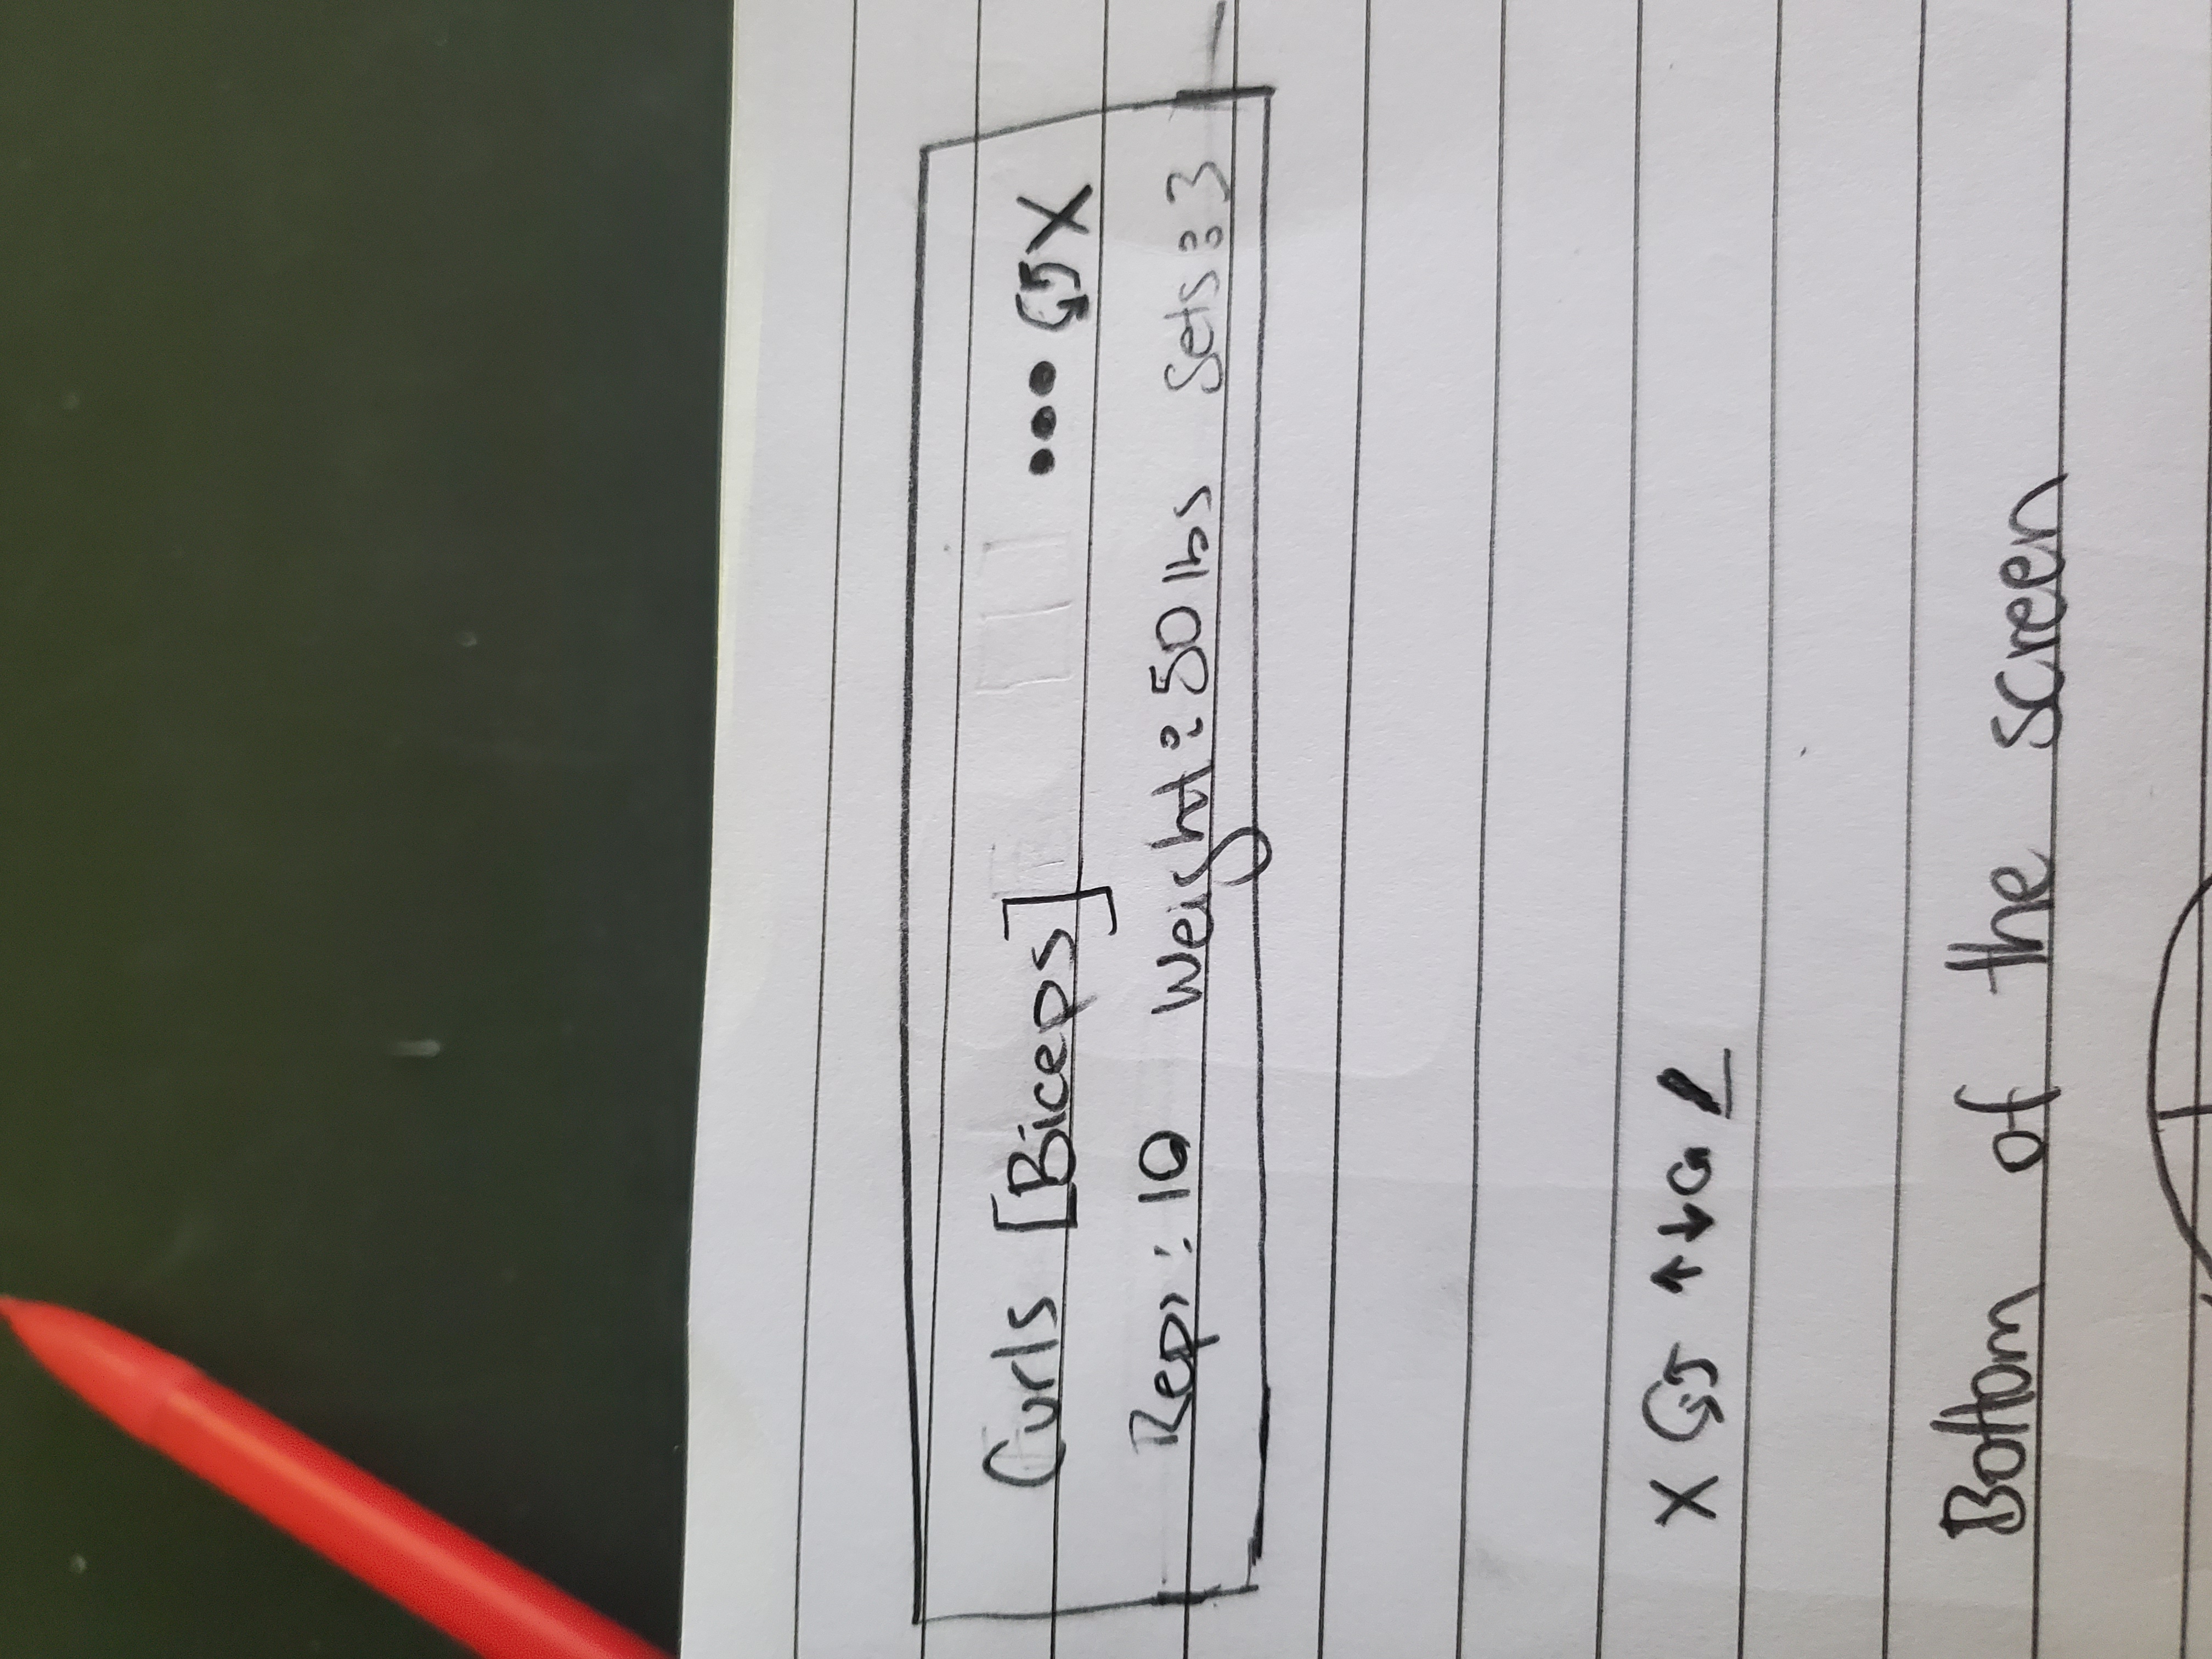 Curls [Biceps] ••• X
Reps: 10 Weight: 50 lbs Sets: 3
X ↑ ↓
Bottom of the screen